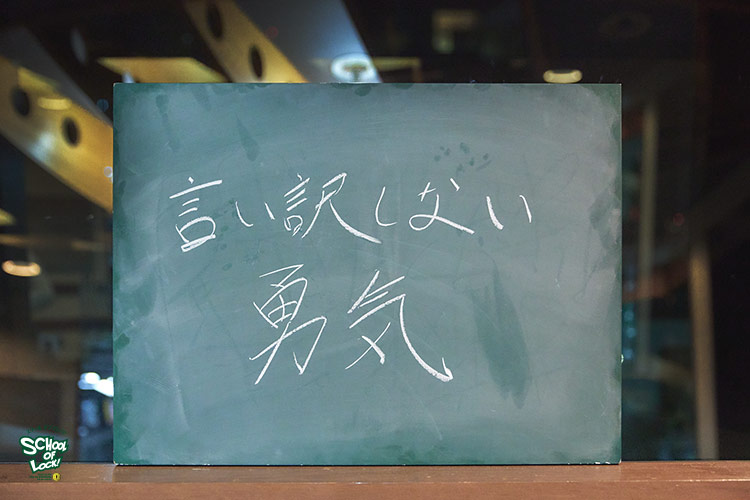 言い訳しない
勇気
SCHOOL
OF
LOCK!